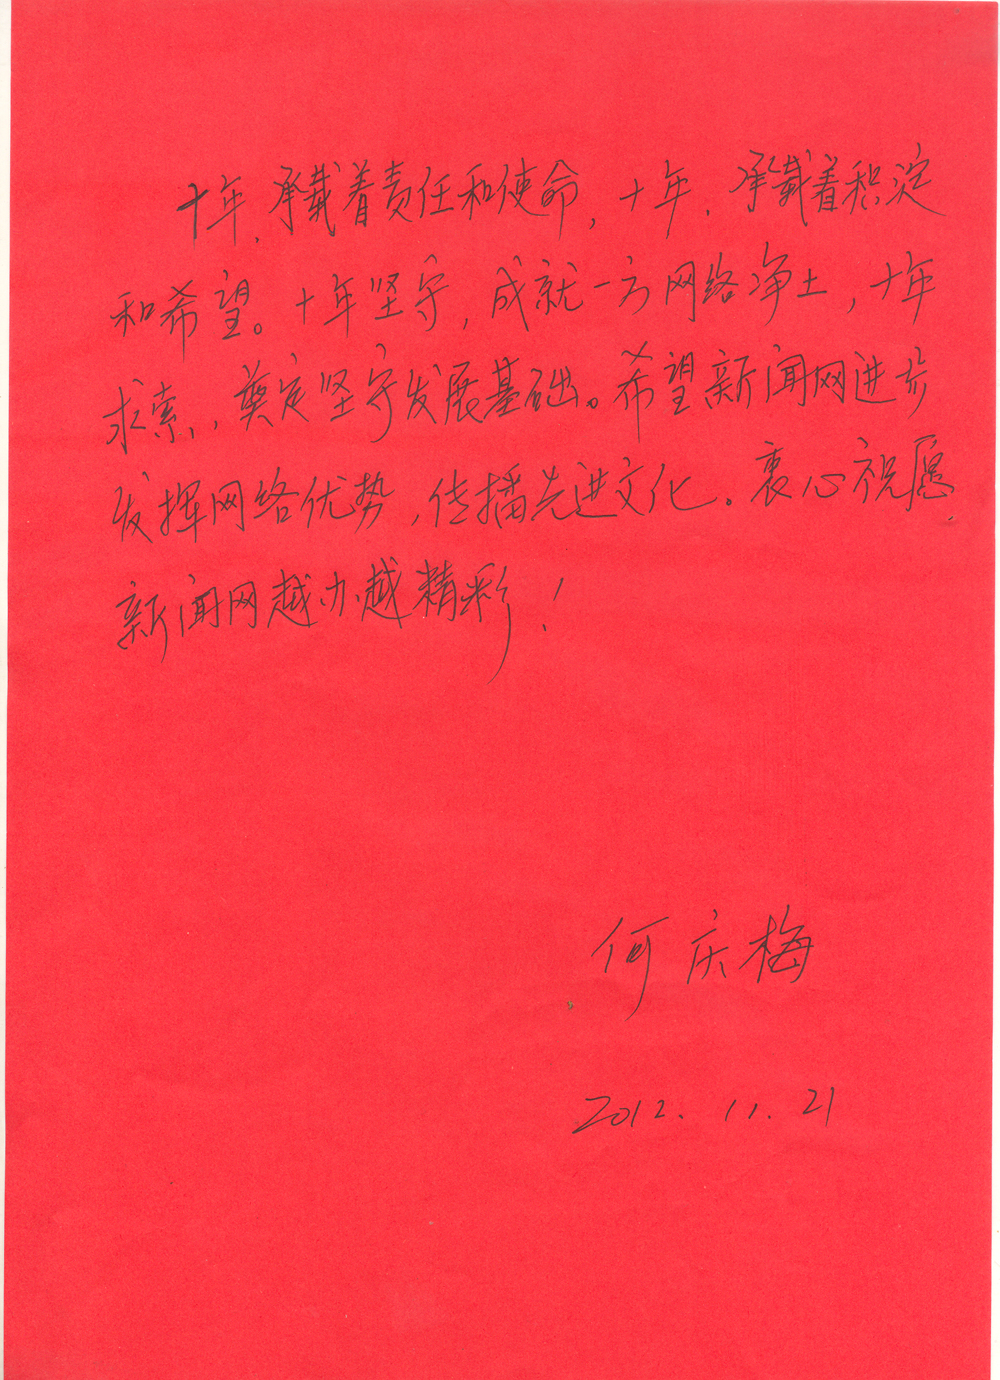 十年，承载着责任和使命，十年，承载着积淀
和希望。十年坚守，成就一方网络净土，十年
求索，奠定坚守发展基础。希望新闻网进步
发挥网络优势，传播先进文化。衷心祝愿
新闻网越办越精彩！
何庆梅
2012.11.21